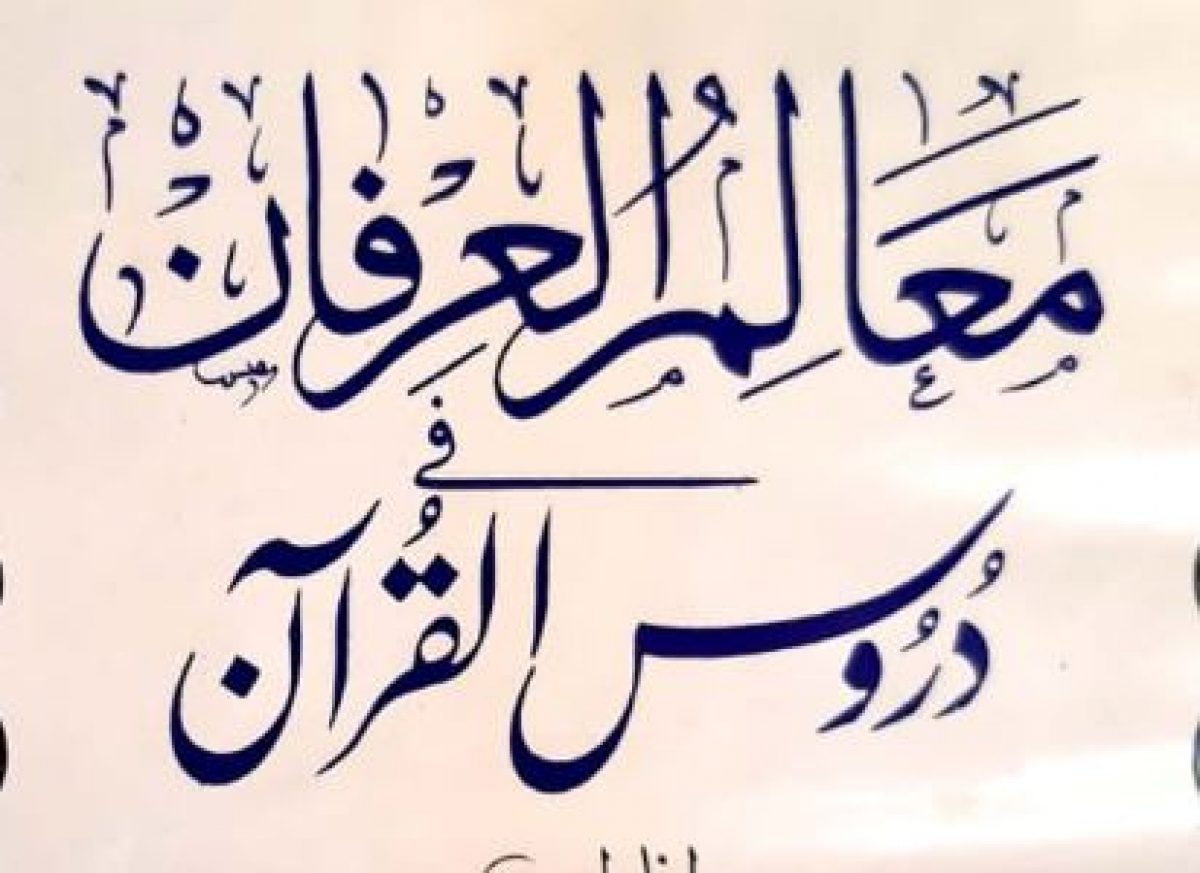 مَعَالِمُ الْعِرْفَانْ
فی
دُرُوس القُرآن